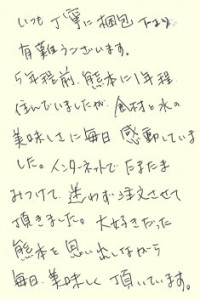 いつも丁寧に梱包下さり
有難うございます。
5年程前、熊本に1年程
住んでいましたが、食材と水の
美味しさに毎日感動していま
した。インターネットでたまたま
みつけて、迷わず注文させて
頂きました。大好きだった
熊本を思い出しながら
毎日、美味しく頂いています。